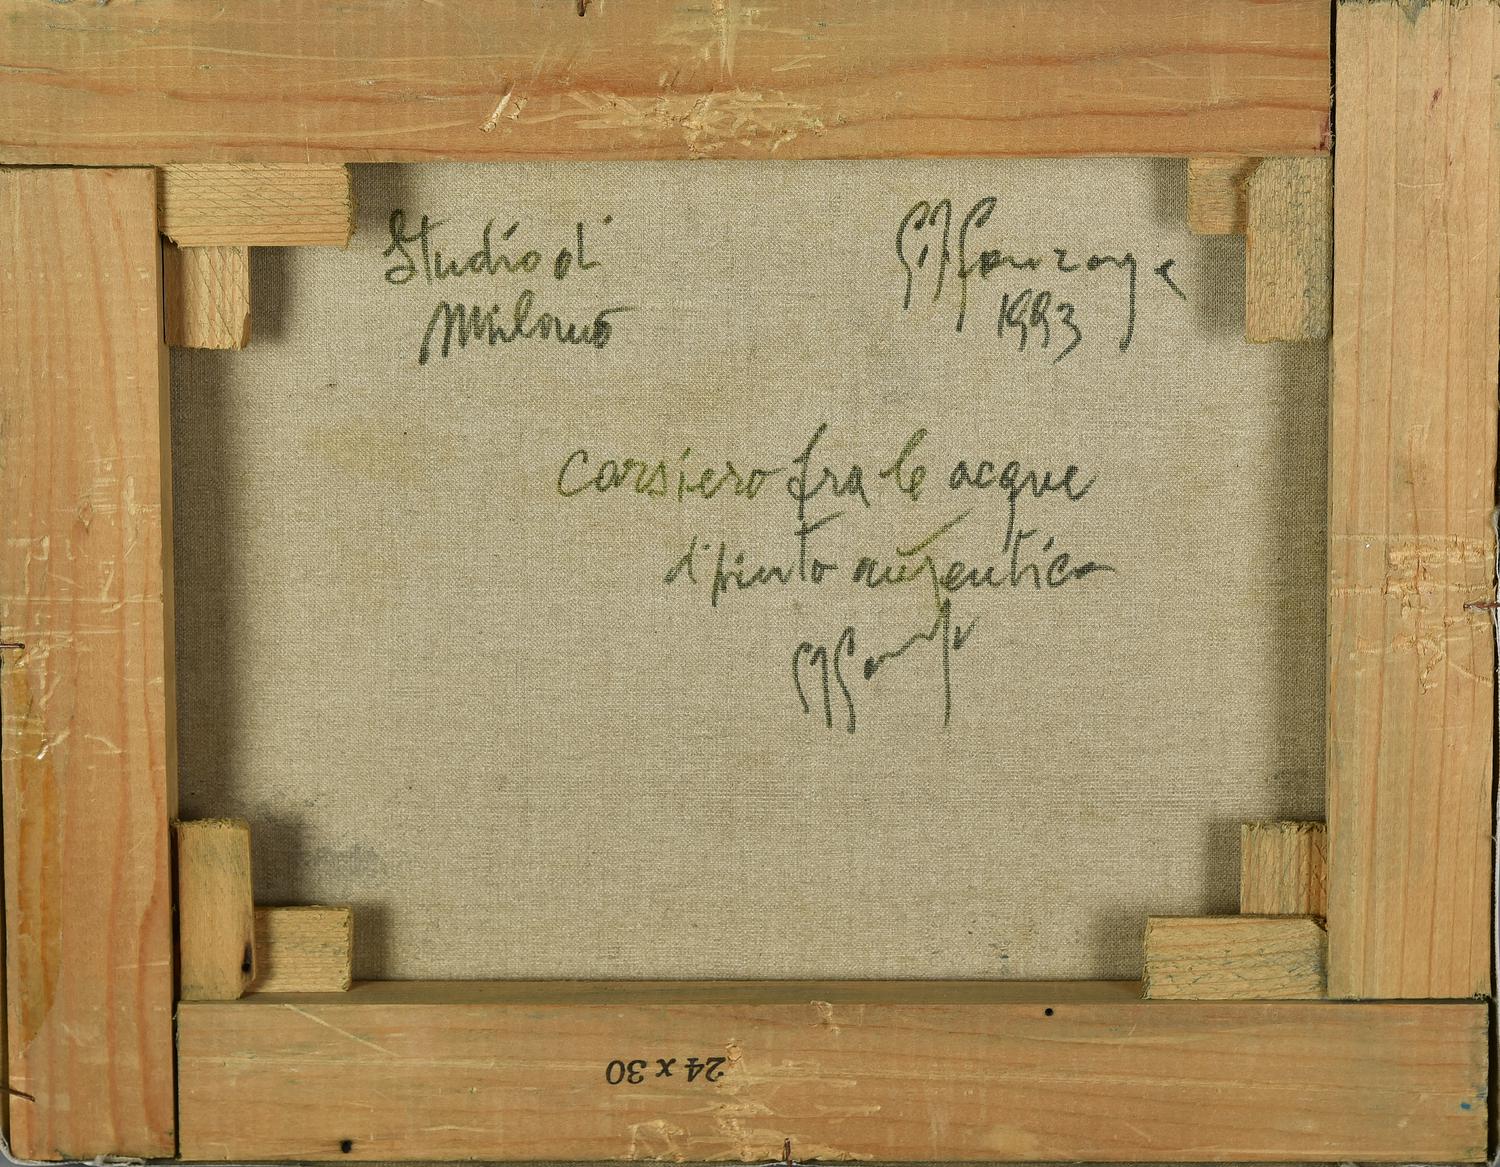 Studio di
Milano
GFGonzaga
1993
Corsiero fra le acque
dipinto autentico
24 x 30